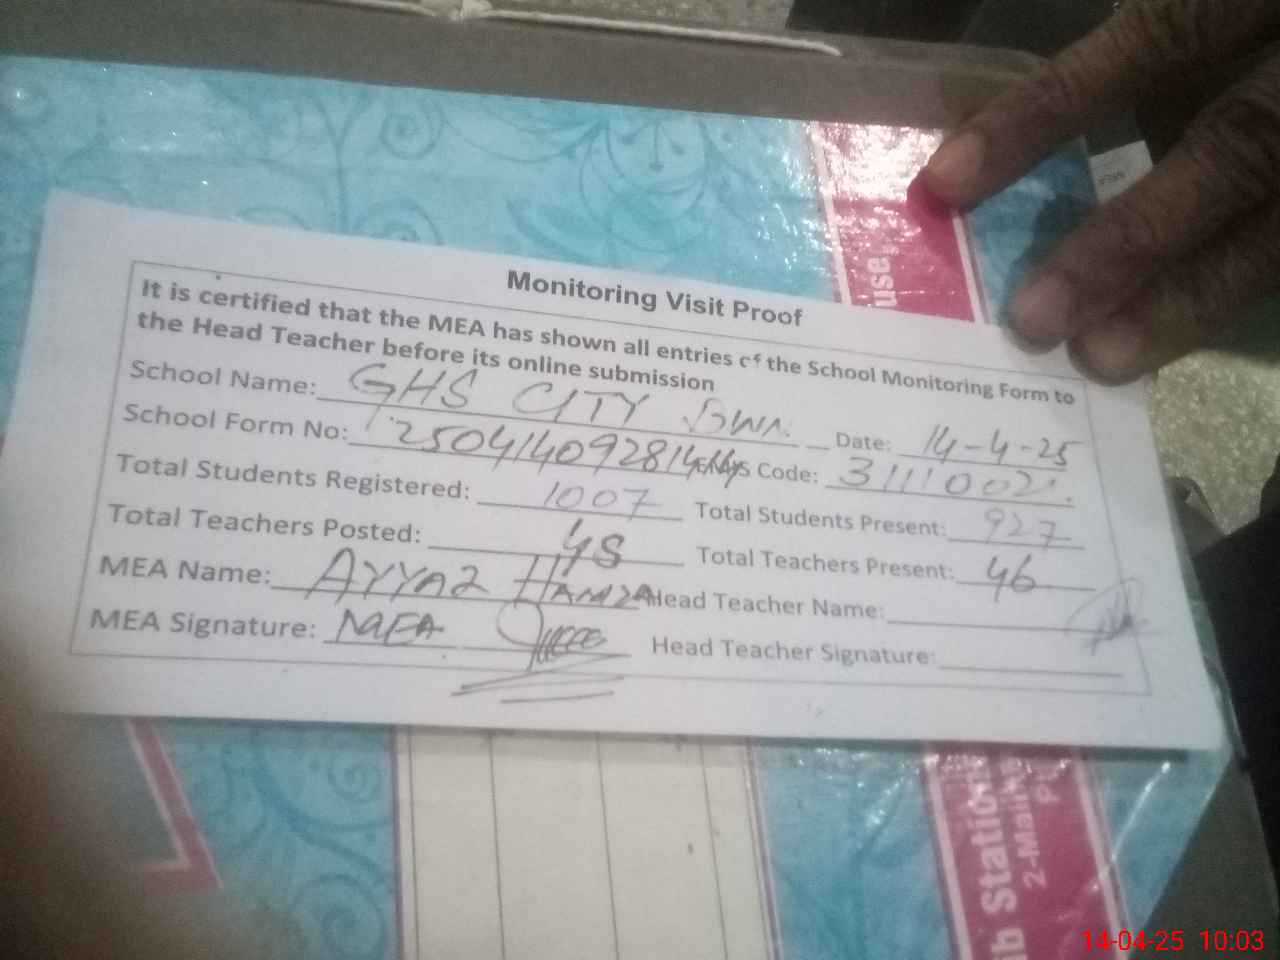 Monitoring Visit Proof
It is certified that the MEA has shown all entries of the School Monitoring Form to
the Head Teacher before its online submission
School Name: GHS CITY BWN. Date: 14-4-25
School Form No: EMIS Code: 31110021.
Total Students Registered: 1007 Total Students Present: 927
Total Teachers Posted: 48 Total Teachers Present: 46
MEA Name: AYYAZ HAMZA Head Teacher Name:
MEA Signature: MEA Head Teacher Signature:
use
ib Station
2-Mali
14-04-25 10:03